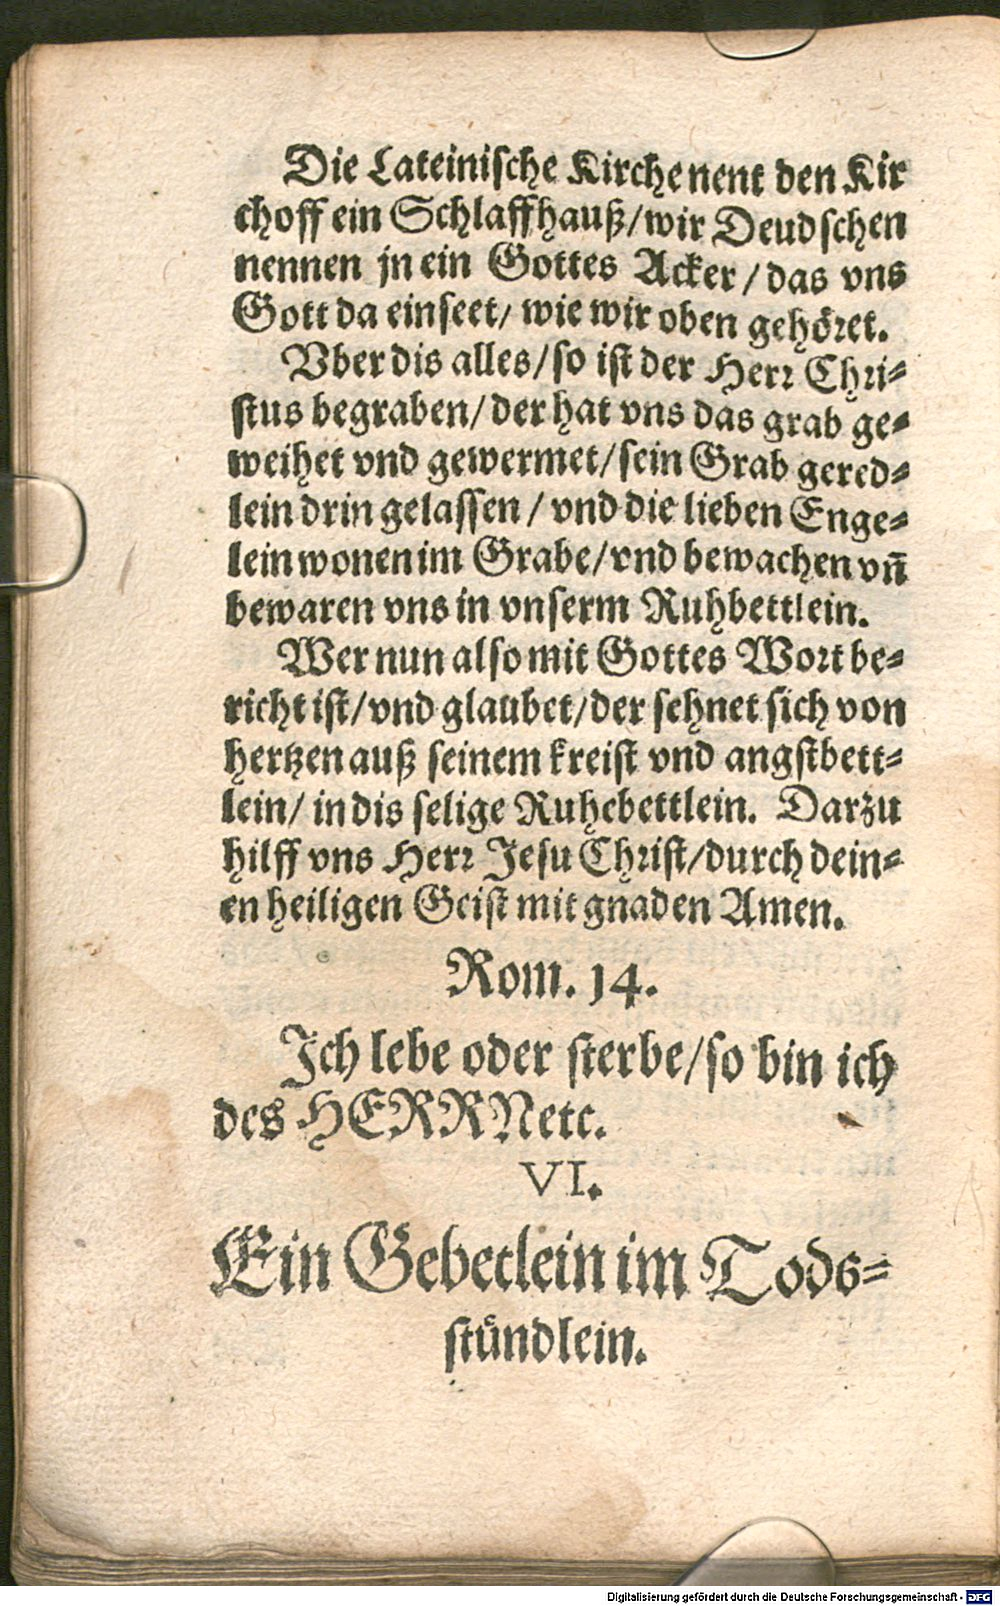 Die Lateinische Kirche nent den Kir
choff ein Schlaffhauß/wir Deudschen
nennen jn ein Gottes Acker/das vns
Gott da einseet/ wie wir oben gehöret.
Vber dis alles/so ist der Herr Chri-
stus begraben/der hat vns das grab ge-
weihet vnd gewermet/sein Grab gered-
lein drin gelassen/vnd die lieben Enge-
lein wonen im Grabe/vnd bewachen vn̄
bewaren vns in vnserm Ruhbettlein.
Wer nun also mit Gottes Wort be-
richt ist/vnd glaubet/der sehnet sich von
hertzen auß seinem kreist vnd angstbett-
lein/ in dis selige Ruhebettlein. Darzu
hilff vns Herr Jesu Christ/durch dein-
en heiligen Geist mit gnaden Amen.
Rom. 14.
Ich lebe oder sterbe/so bin ich
des HERRN etc.
VI.
Ein Gebetlein im Tods-
stuͤndlein.
Digitalisierung gefördert durch die Deutsche Forschungsgemeinschaft - DFG